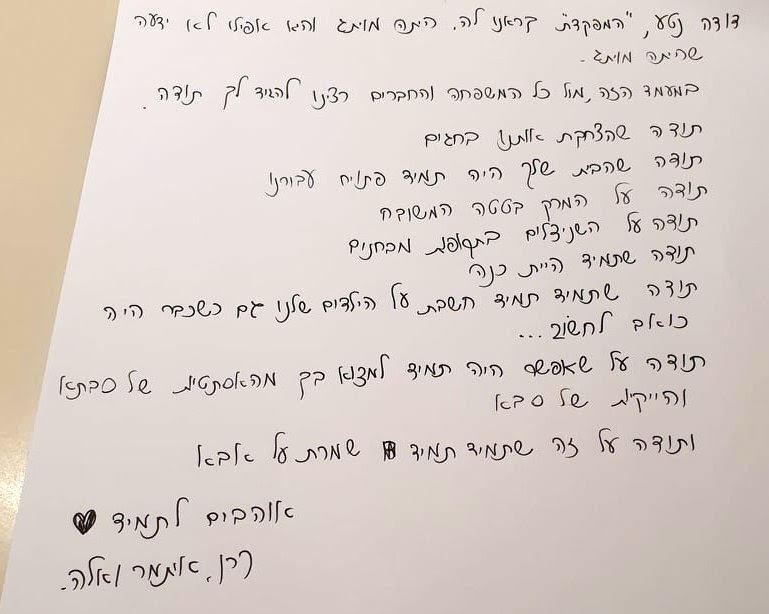 דודה נטע, "המפקדת" קראנו לה. היתה מותג והיא אפילו לא ידעה
שהיתה מותג.
במעמד הזה, מול כל המשפחה והחברים רצינו להגיד לך תודה.
תודה שהצחקת אותנו בחגים
תודה שהבית שלך היה תמיד פתוח עבורנו
תודה על המרק בטטה המשובח
תודה על השניצלים בתקופת מבחנים
תודה שתמיד היית כנה
תודה שתמיד תמיד חשבת על הילדים שלנו גם כשכבר היה
כואב לחשוב...
תודה על שאפשר היה תמיד למצוא בך מהאסתטיות של סבתא
והייקיות של סבא
ותודה על זה שתמיד תמיד שמרת על אבא
אוהבים לתמיד ♥
איתמר ואלה.